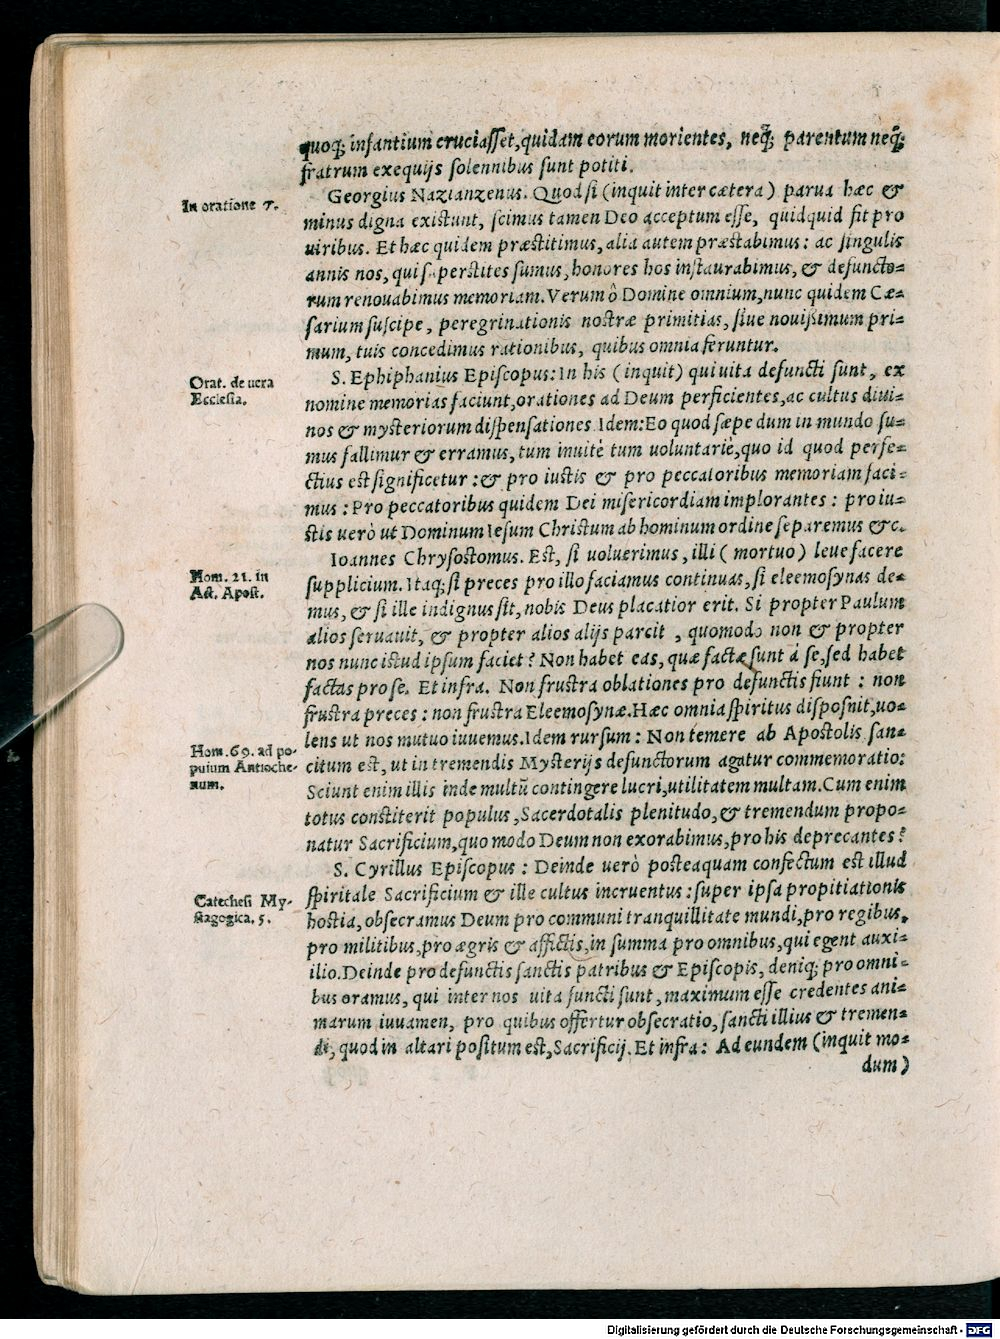 quoq; infantium cruciasset, quidam eorum morientes, neq; parentum neq;
fratrum exequijs solennibus sunt potiti.
In oratione 7.
Georgius Nazianzenus. Quod si (inquit inter cætera) parua hæc &
minus digna existunt, scimus tamen Deo acceptum esse, quidquid fit pro
uiribus. Et hæc quidem præstitimus, alia autem præstabimus: ac singulis
annis nos, qui superstites sumus, honores hos instaurabimus, & defuncto=
rum renouabimus memoriam. Verum ô Domine omnium, nunc quidem Cæ=
sarium suscipe, peregrinationis nostræ primitias, siue nouissimum pri=
mum, tuis concedimus rationibus, quibus omnia feruntur.
Orat. de uera
Ecclesia.
S. Ephiphanius Episcopus: In his (inquit) qui uita defuncti sunt, ex
nomine memorias faciunt, orationes ad Deum perficientes, ac cultus diui=
nos & mysteriorum dispensationes. Idem: Eo quod sæpe dum in mundo su=
mus fallimur & erramus, tum inuitè tum uoluntariè, quo id quod perfe=
ctius est significetur: & pro iustis & pro peccatoribus memoriam faci=
mus: Pro peccatoribus quidem Dei misericordiam implorantes: pro iu=
stis uerò ut Dominum Iesum Christum ab hominum ordine separemus &c.
Hom. 21. in
Act. Apost.
Ioannes Chrysostomus. Est, si uoluerimus, illi (mortuo) leue facere
supplicium. Itaq; si preces pro illo faciamus continuas, si eleemosynas de=
mus, & si ille indignus sit, nobis Deus placatior erit. Si propter Paulum
alios seruauit, & propter alios alijs parcit, quomodo non & propter
nos nunc istud ipsum faciet? Non habet eas, quæ factæ sunt à se, sed habet
factas pro se. Et infra. Non frustra oblationes pro defunctis fiunt: non
frustra preces: non frustra Eleemosynæ. Hæc omnia spiritus disposuit, uo=
lens ut nos mutuo iuuemus. Idem rursum: Non temere ab Apostolis san=
Hom. 69. ad po-
pulum Antioche-
num.
citum est, ut in tremendis Mysterijs defunctorum agatur commemoratio:
Sciunt enim illis inde multũ contingere lucri, utilitatem multam. Cum enim
totus constiterit populus, Sacerdotalis plenitudo, & tremendum propo=
natur Sacrificium, quo modo Deum non exorabimus, pro his deprecantes?
S. Cyrillus Episcopus: Deinde uerò posteaquam confectum est illud
Catechesi My-
stagogica. 5.
spiritale Sacrificium & ille cultus incruentus: super ipsa propitiationis
hostia, obsecramus Deum pro communi tranquillitate mundi, pro regibus,
pro militibus, pro ægris & affictis, in summa pro omnibus, qui egent auxi=
ilio. Deinde pro defunctis sanctis patribus & Episcopis, deniq; pro omni=
bus oramus, qui inter nos uita functi sunt, maximum esse credentes ani=
marum iuuamen, pro quibus offertur obsecratio, sancti illius & tremen=
di, quod in altari positum est, Sacrificij. Et infra: Ad eundem (inquit mo=
dum)
Digitalisierung gefördert durch die Deutsche Forschungsgemeinschaft - DFG